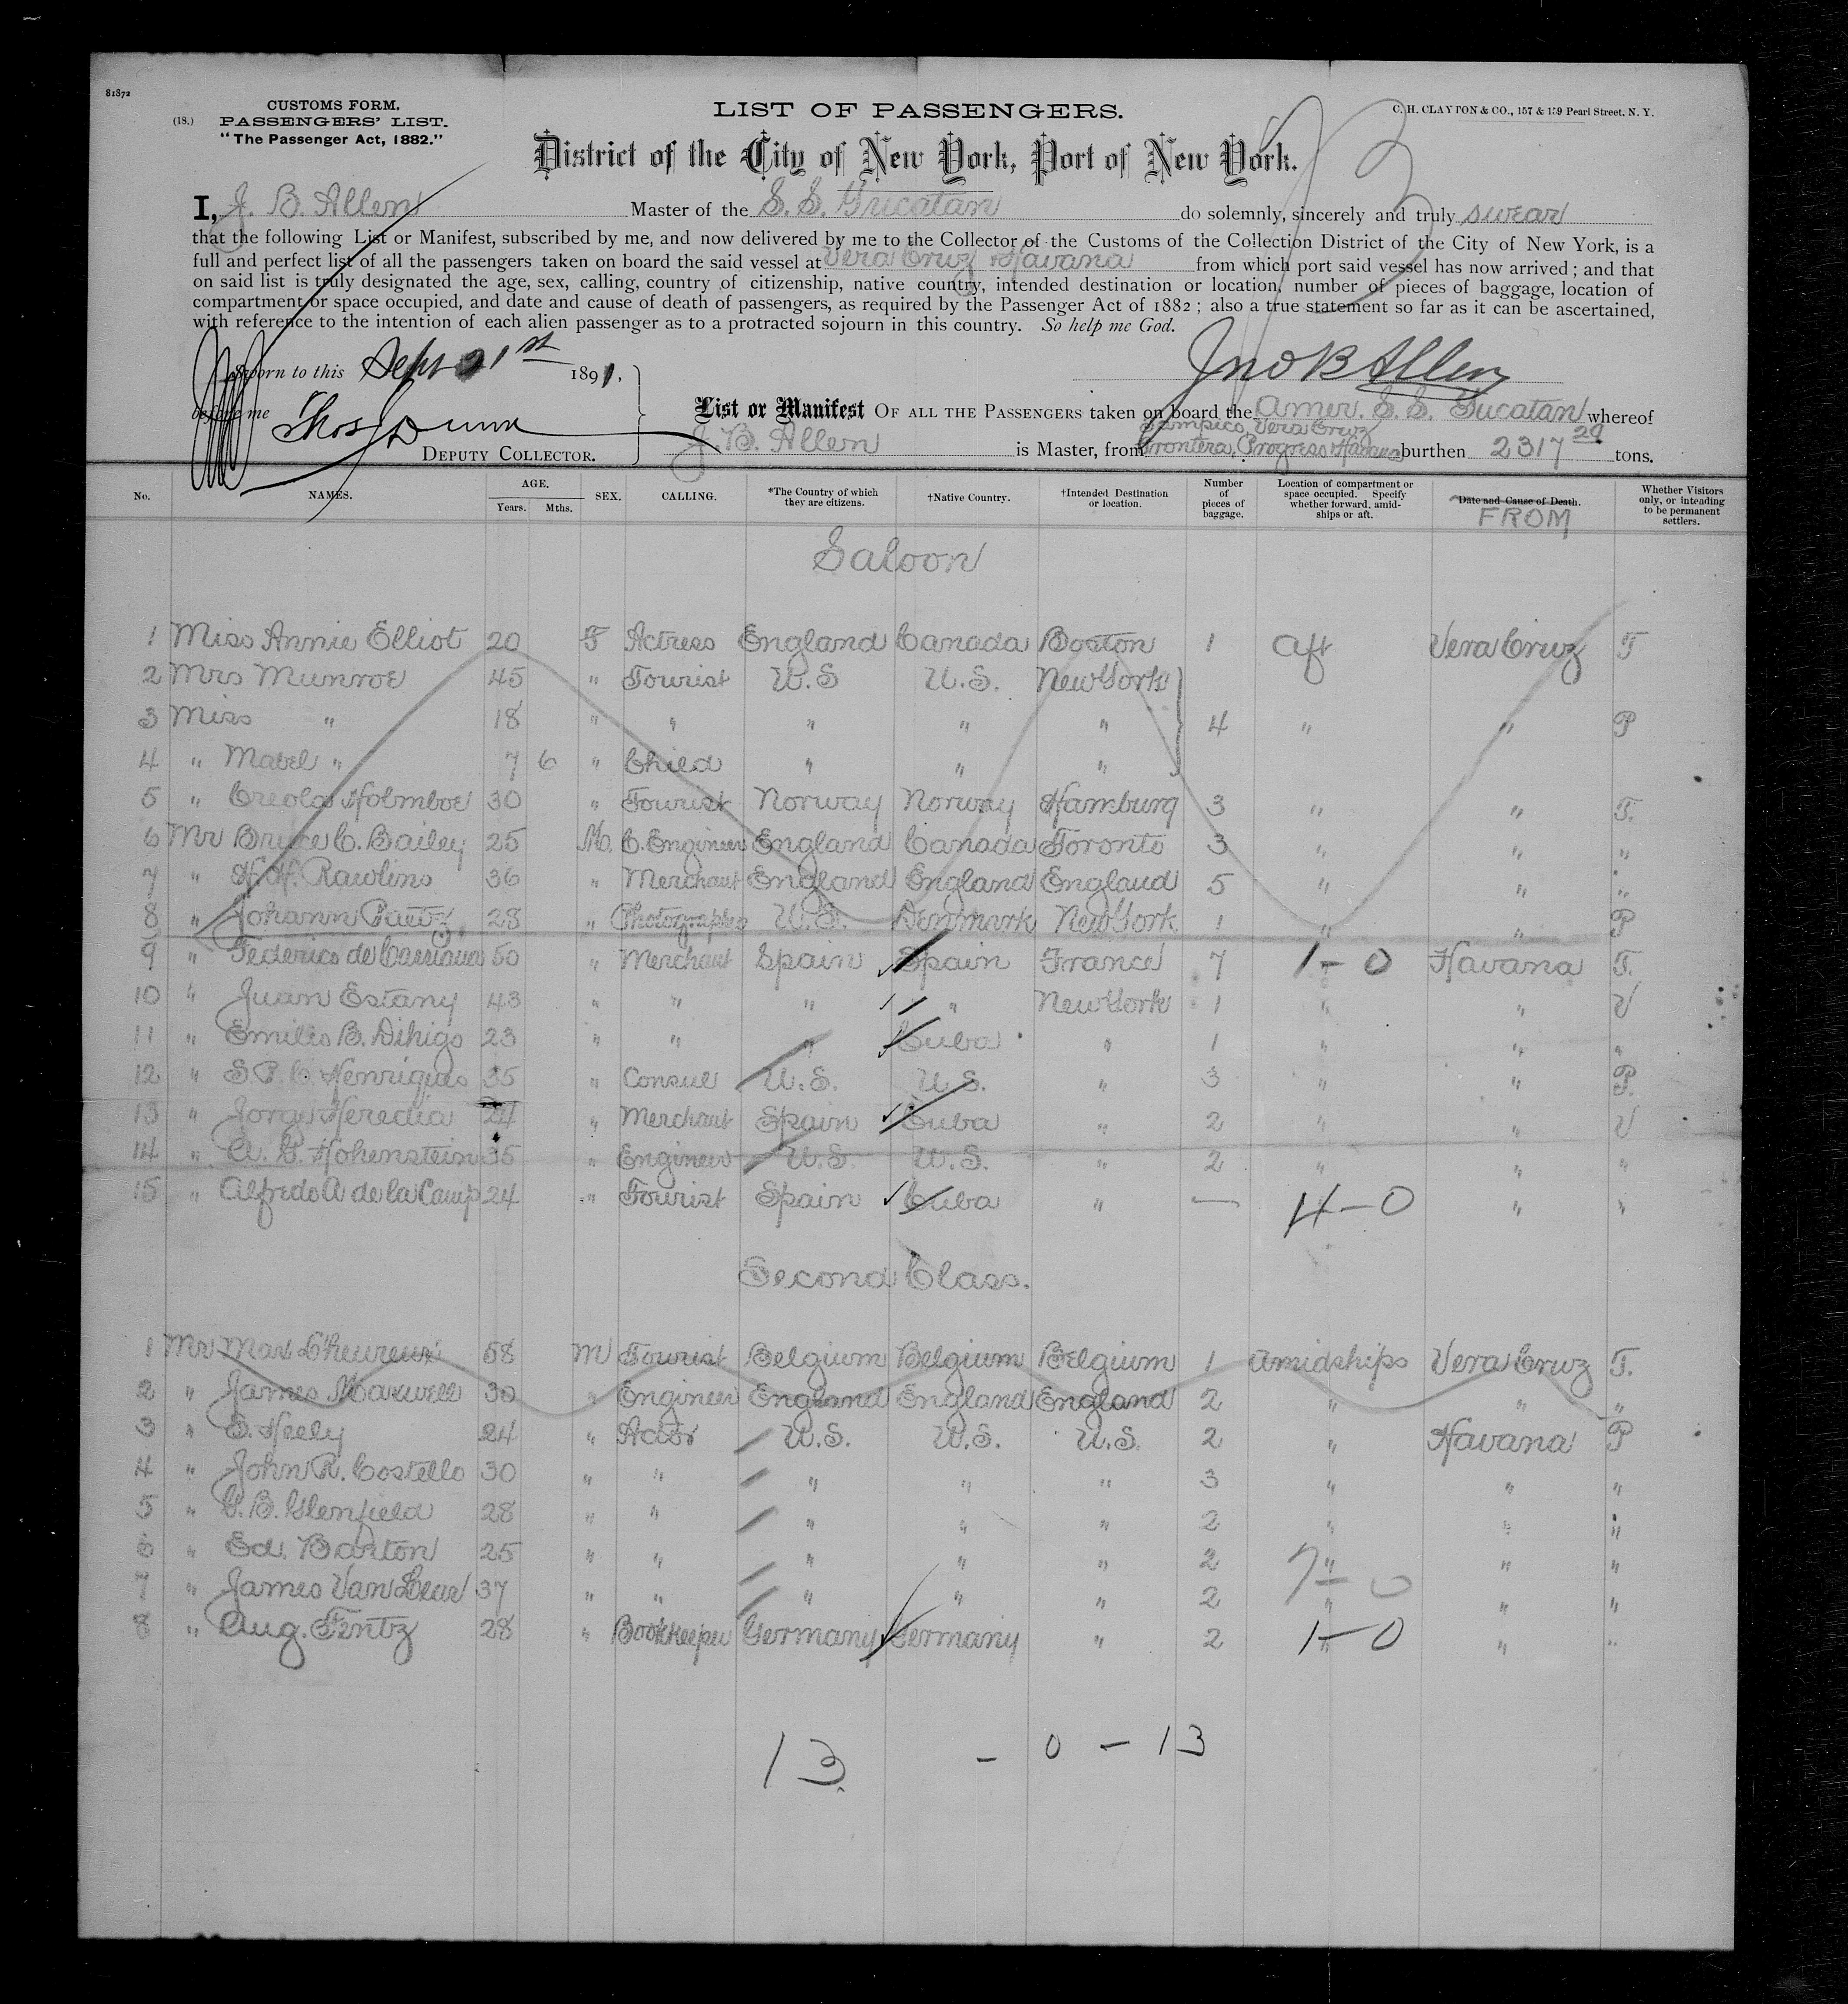 81872
(18.)
CUSTOMS FORM.
PASSENGERS' LIST.
"The Passenger Act, 1882."
LIST OF PASSENGERS.
C. H. CLAYTON & CO., 157 & 159 Pearl Street, N. Y.
District of the City of New York, Port of New York.
I, J. B. Allen Master of the S. S. Yucatan do solemnly, sincerely and truly swear
that the following List or Manifest, subscribed by me, and now delivered by me to the Collector of the Customs of the Collection District of the City of New York, is a
full and perfect list of all the passengers taken on board the said vessel at Vera Cruz Havana from which port said vessel has now arrived; and that
on said list is truly designated the age, sex, calling, country of citizenship, native country, intended destination or location, number of pieces of baggage, location of
compartment or space occupied, and date and cause of death of passengers, as required by the Passenger Act of 1882; also a true statement so far as it can be ascertained,
with reference to the intention of each alien passenger as to a protracted sojourn in this country. So help me God.
Sworn to this Sept 21st 1891,
Jno B Allen
before me Thos J Dunn
DEPUTY COLLECTOR.
List or Manifest OF ALL THE PASSENGERS taken on board the Amer. S. S. Yucatan whereof
J. B. Allen is Master, from Tampico, Vera Cruz Frontera, Progreso Havana burthen 2317 29 tons.
No. NAMES. AGE. Years. Mths. SEX. CALLING. *The Country of which they are citizens. †Native Country. †Intended Destination or location. Number of pieces of baggage. Location of compartment or space occupied. Specify whether forward, amidships or aft. Date and Cause of Death. FROM Whether Visitors only, or intending to be permanent settlers.
Saloon
1 Miss Annie Elliot 20 F Actress England Canada Boston 1 Aft Vera Cruz T
2 Mrs Munroe 45 " Tourist U.S U.S. New York
3 Miss " 18 " " " " " 4 " " P
4 " Mabel " 7 6 " Child " " "
5 " Creola Holmboe 30 " Tourist Norway Norway Hamburg 3 " " T.
6 Mr Bryce C. Bailey 25 M. C. Engineer England Canada Toronto 3 " " "
7 " H. H. Rawlins 36 " Merchant England England England 5 " " "
8 " Johann 28 " Photographer U.S. Denmark New York 1 " " P
9 " Federico de 50 " Merchant Spain Spain France 7 1-0 Havana T.
10 " Juan Estany 43 " " " " New York 1 " " V
11 " Emilio B. Dihigo 23 " " " Cuba " 1 " " "
12 " Henriques 35 " Consul U.S. U.S. " 3 " " P.
13 " Jorge Heredia 24 " Merchant Spain Cuba " 2 " " V
14 " A. G. Hohenstein 35 " Engineer U.S. U.S. " 2 " " "
15 " Alfredo A de la Camp 24 " Tourist Spain Cuba " — 4-0 " "
Second Class.
1 Mr Max L'heureux 58 M Tourist Belgium Belgium Belgium 1 Amidships Vera Cruz T.
2 " James Maxwell 30 " Engineer England England England 2 " " "
3 " E. Heely 24 " Actor U.S. U.S. U.S. 2 " Havana P
4 " John R. Costello 30 " " " " " 3 " " "
5 " G. B. Glenfield 28 " " " " " 2 " " "
6 " Ed. Barton 25 " " " " " 2 " " "
7 " James Van Lear 37 " " " " " 2 7-0 " "
8 " Aug. Fentz 28 " Bookkeeper Germany Germany " 2 1-0 " "
13 - 0 - 13